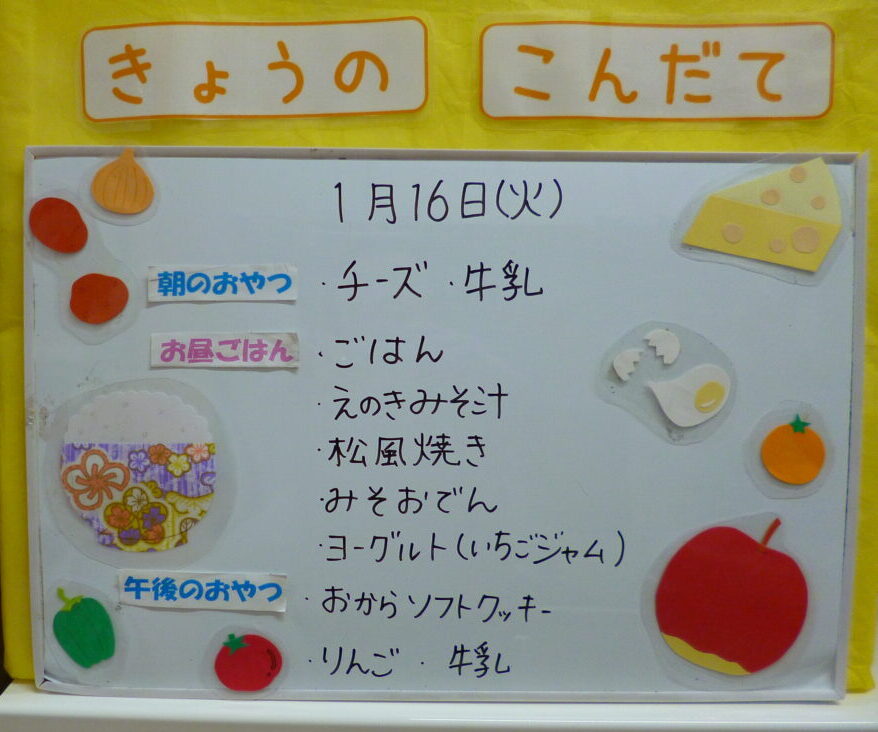 きょうの こんだて
1月16日(火)
朝のおやつ ・チーズ ・牛乳
お昼ごはん ・ごはん
・えのきみそ汁
・松風焼き
・みそおでん
・ヨーグルト(いちごジャム)
午後のおやつ ・おからソフトクッキー
・りんご ・牛乳